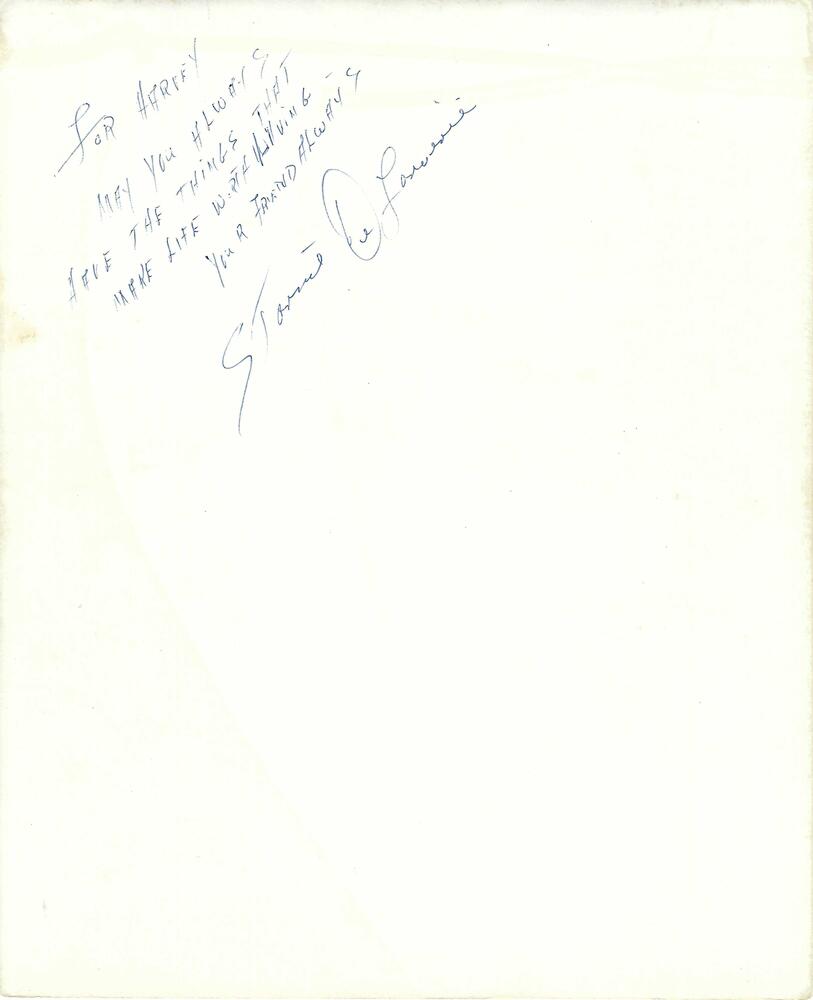 FOR HARVEY
MAY YOU ALWAYS
HAVE THE THINGS THAT
MAKE LIFE WORTH LIVING -
YOUR FRIEND ALWAYS
Stormé De Larverié